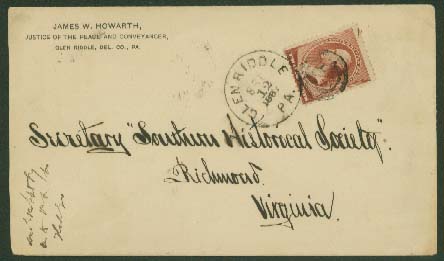 JAMES W. HOWARTH,
JUSTICE OF THE PEACE AND CONVEYANCER,
GLEN RIDDLE, DEL. CO., PA.
GLEN RIDDLE
PA.
Secretary "Southern Historical Society"
Richmond
Virginia.